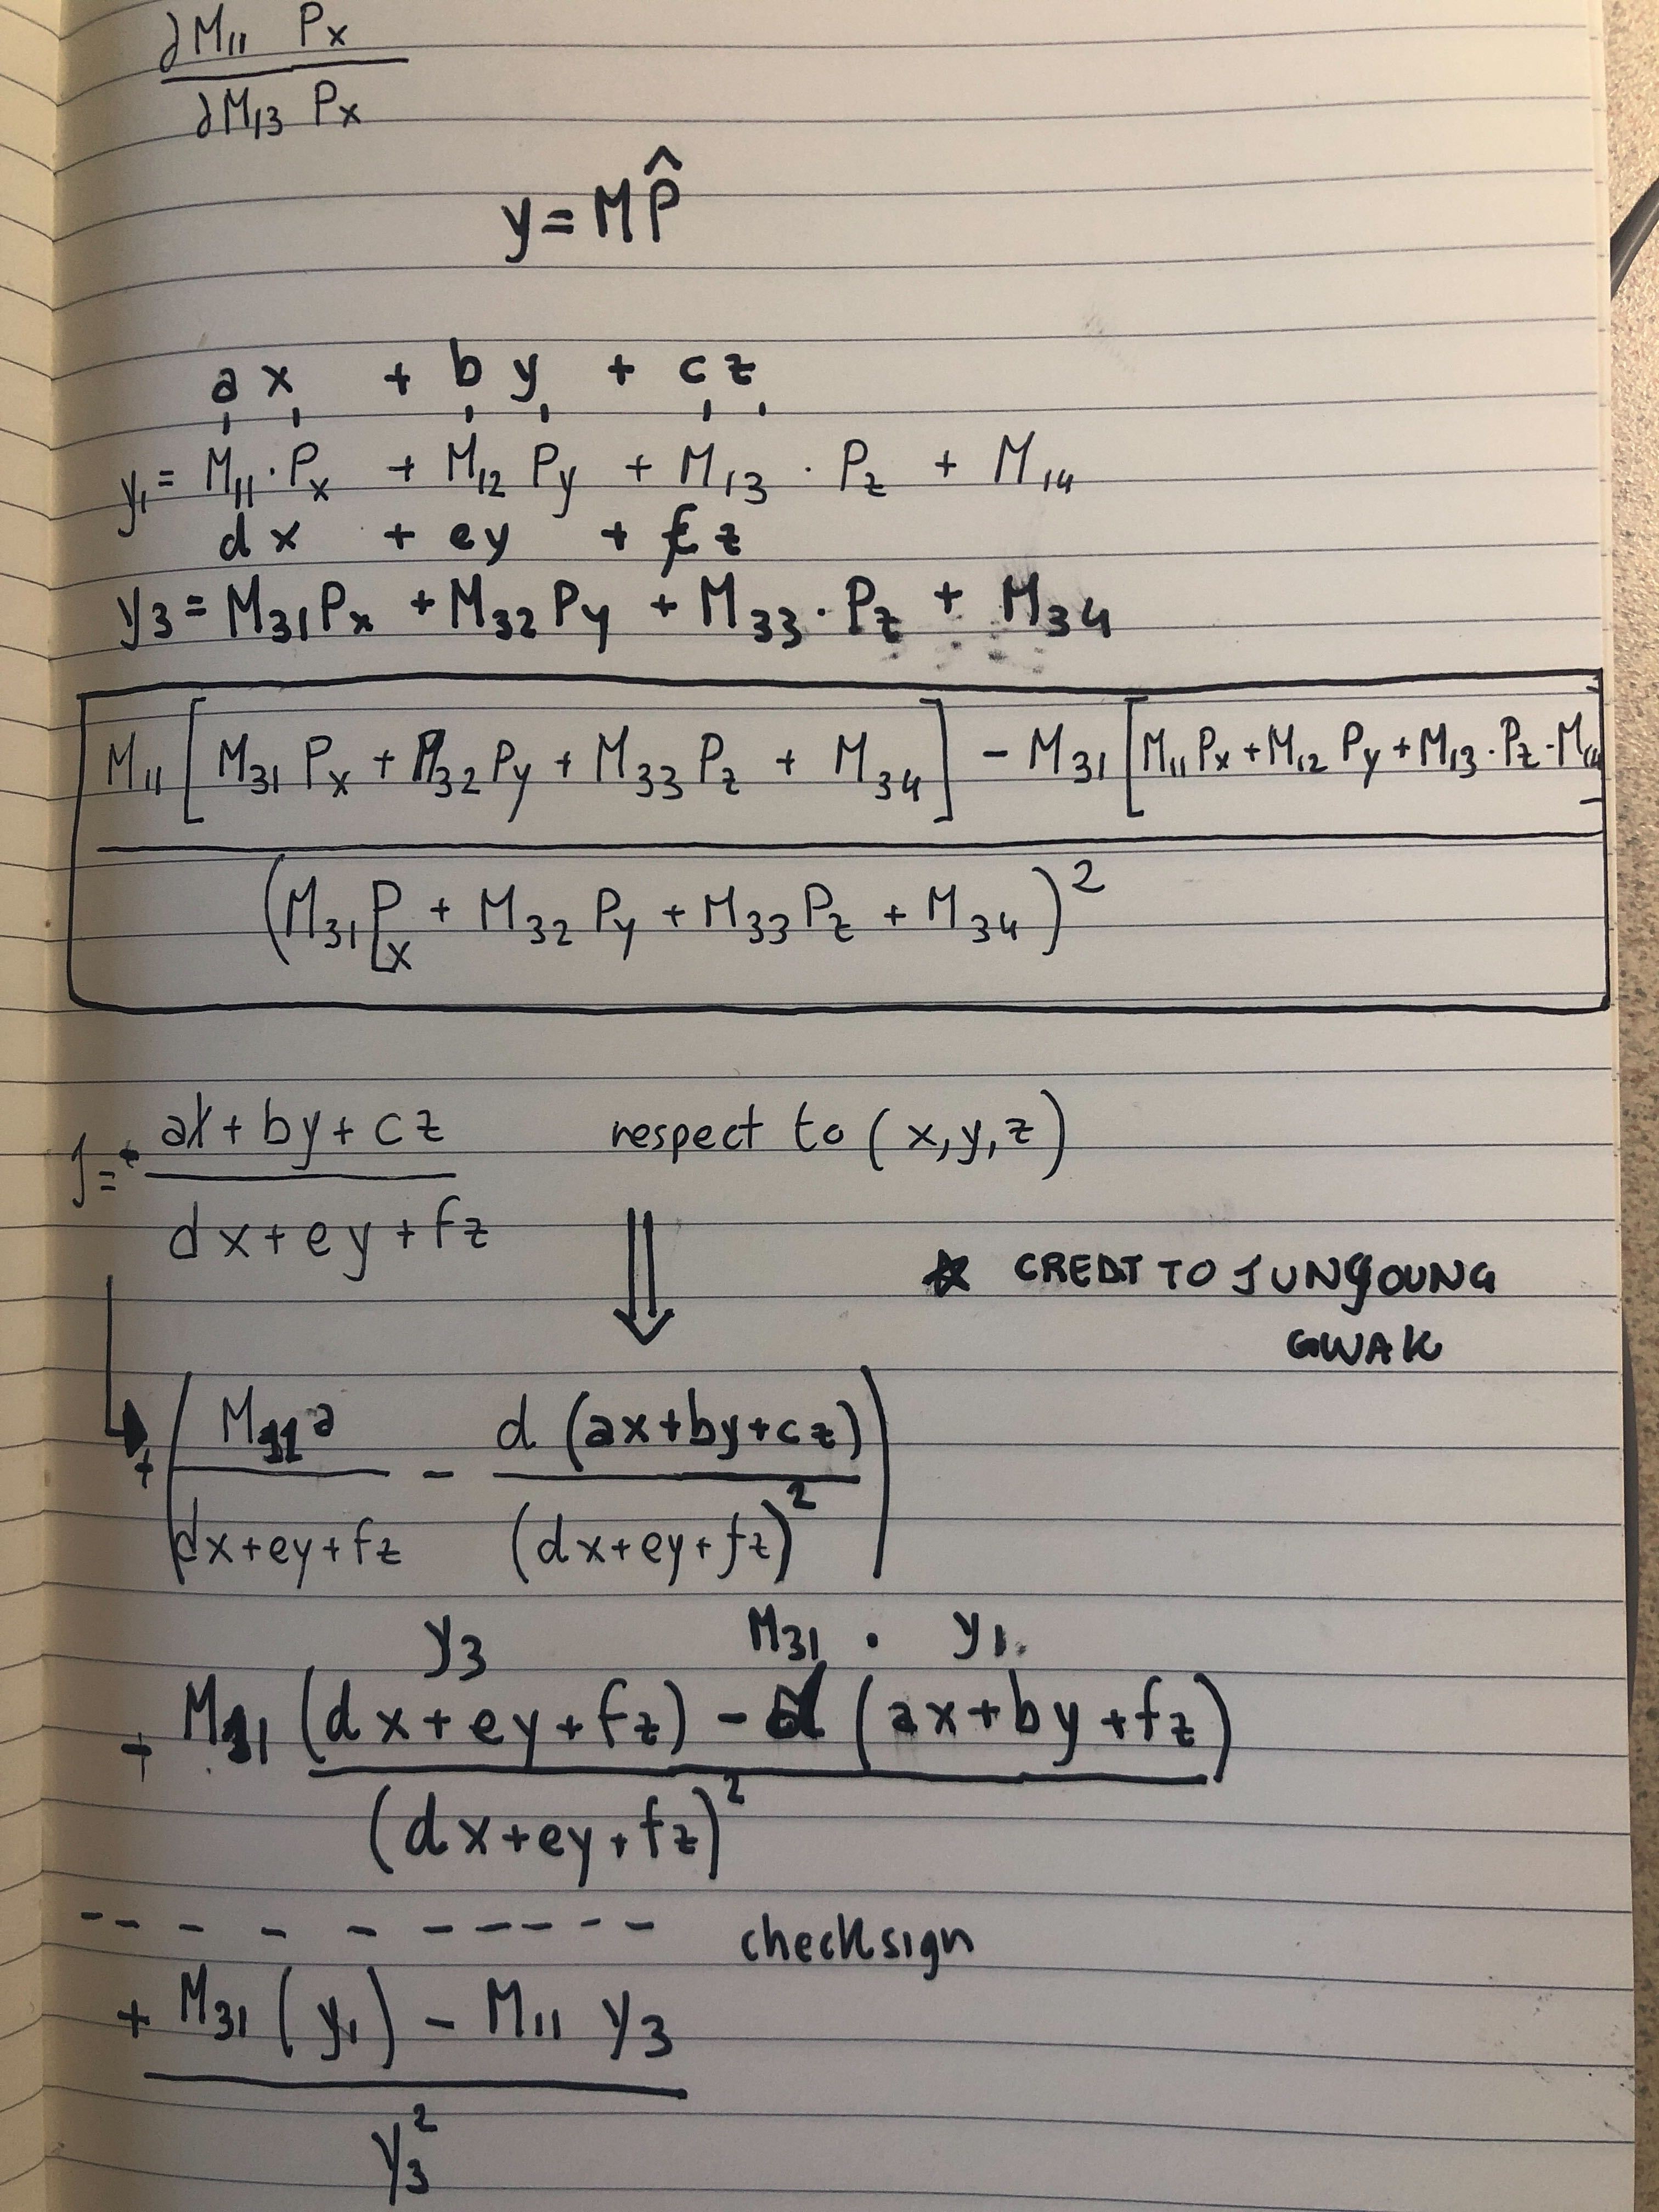 ∂M₁₁ Pₓ
∂M₁₃ Pₓ
y = M P̂
a x + b y + c z
y₁ = M₁₁ · Pₓ + M₁₂ Py + M₁₃ · Pz + M₁₄
d x + e y + f z
y₃ = M₃₁ Pₓ + M₃₂ Py + M₃₃ · Pz + M₃₄
M₁₁ [ M₃₁ Pₓ + M₃₂ Py + M₃₃ Pz + M₃₄ ] - M₃₁ [ M₁₁ Pₓ + M₁₂ Py + M₁₃ · Pz - M₁₄ ]
( M₃₁ Pₓ + M₃₂ Py + M₃₃ Pz + M₃₄ )²
ax + by + cz respect to ( x, y, z )
dx + ey + fz
☆ CREDIT TO JUNYOUNG
GWAK
+ ( M₁₁ a - d (ax+by+cz) )
dx+ey+fz (dx+ey+fz)²
y₃ M₃₁ · y₁
+ M₁₁ (dx+ey+fz) - d (ax+by+fz)
(dx+ey+fz)²
- - - - - - - - - - check sign
+ M₃₁ ( y₁ ) - M₁₁ y₃
y₃²